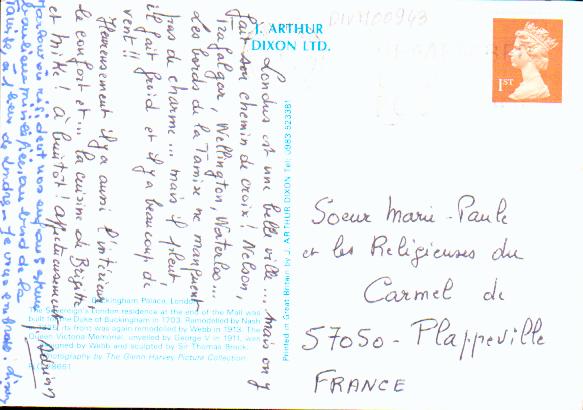 J. ARTHUR
DIXON LTD.
DIVM00943
1ST
Londres est une belle ville... mais on y
fait son chemin de croix ! Nelson,
Trafalgar, Wellington, Waterloo...
Les bords de la Tamise ne manquent
pas de charme... mais il pleut
il fait froid et il y a beaucoup de
vent !!
Heureusement il y a aussi l'intérieur,
le confort et... la cuisine de Brigitte
et Mike ! à bientôt ! affectueusement
Soeur Marie-Paule
et les Religieuses du
Carmel de
57050 - Plappeville
FRANCE
Buckingham Palace, London
The Sovereign's London residence at the end of the Mall was
built for the Duke of Buckingham in 1703. Remodelled by Nash
its front was again remodelled by Webb in 1913. The
Queen Victoria Memorial, unveiled by George V in 1911, was
designed by Webb and sculpted by Sir Thomas Brock.
Photography by The Glenn Harvey Picture Collection
Printed in Great Britain by J. ARTHUR DIXON Tel: 0983 523381
où résident nos enfants
au bord de la
Tamise, à 1 heure de Londres - Je vous embrasse